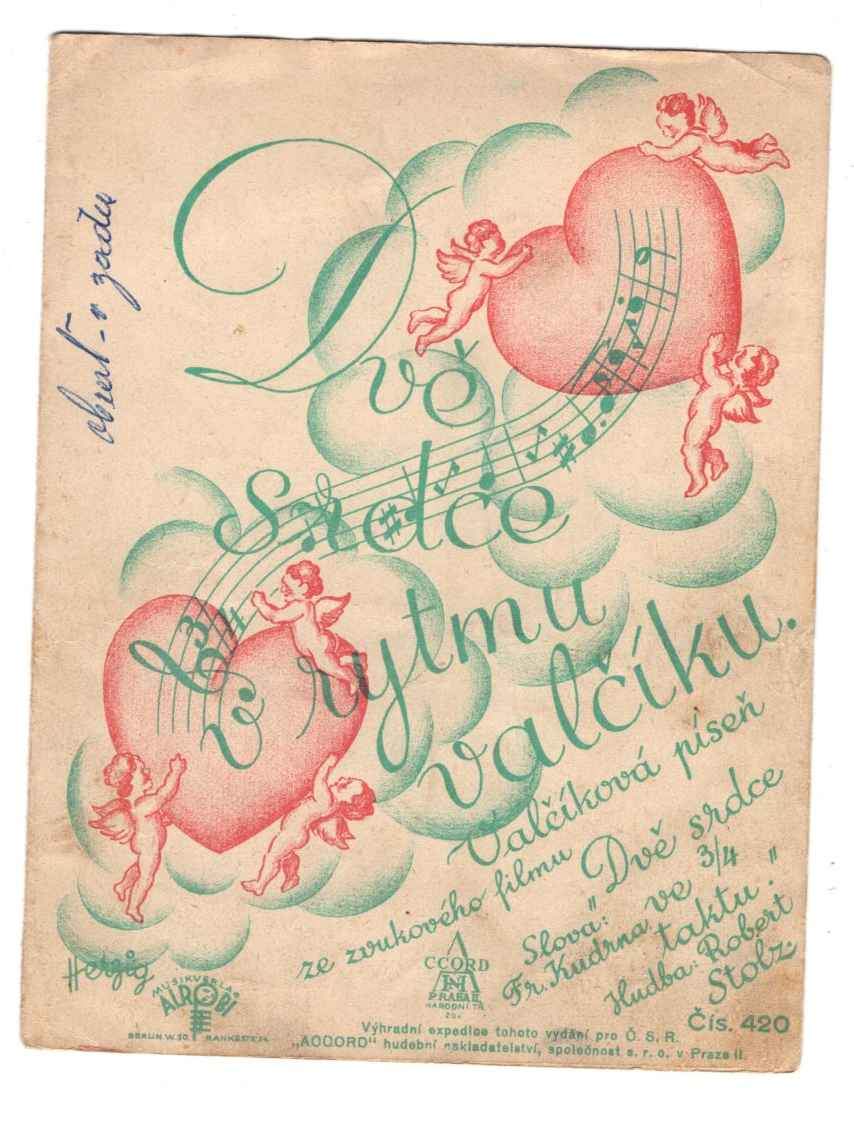 obrať - v zadu
Dvě
Srdce
v rytmu
valčíku.
Valčíková píseň
ze zvukového filmu "Dvě srdce
ve 3/4
taktu."
Slova:
Fr. Kudrna
Hudba: Robert
Stolz.
Herzig
MUSIKVERLAG
ALROBI
BERLIN W.50. RANKESTR.
ACCORD
PRAHA II.
NÁRODNÍ TŘ.
Čís. 420
Výhradní expedice tohoto vydání pro Č. S. R.
„ACCORD" hudební nakladatelství, společnost s. r. o. v Praze II.